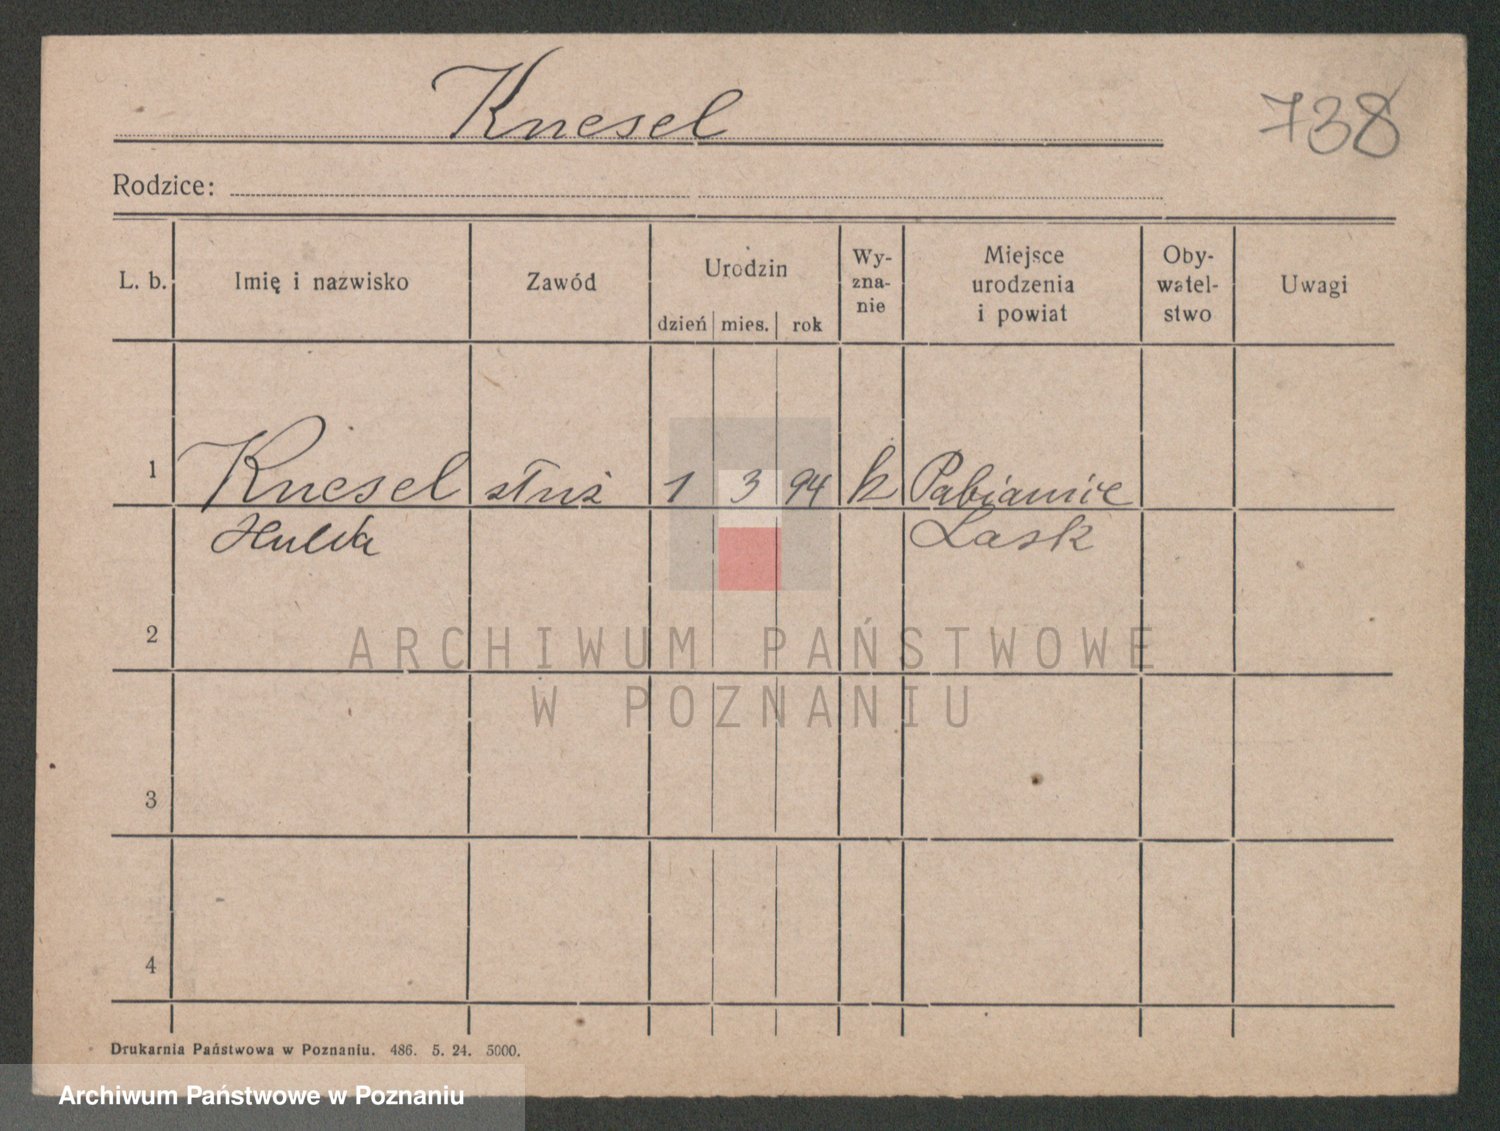 Knesel
738
Rodzice:
L. b. Imię i nazwisko Zawód Urodzin dzień mies. rok Wy-zna-nie Miejsce urodzenia i powiat Oby-watel-stwo Uwagi
1 Knesel służ 1 3 94 k Pabianice
Hulda Lask
2
ARCHIWUM PAŃSTWOWE
W POZNANIU
3
4
Drukarnia Państwowa w Poznaniu. 486. 5. 24. 5000.
Archiwum Państwowe w Poznaniu